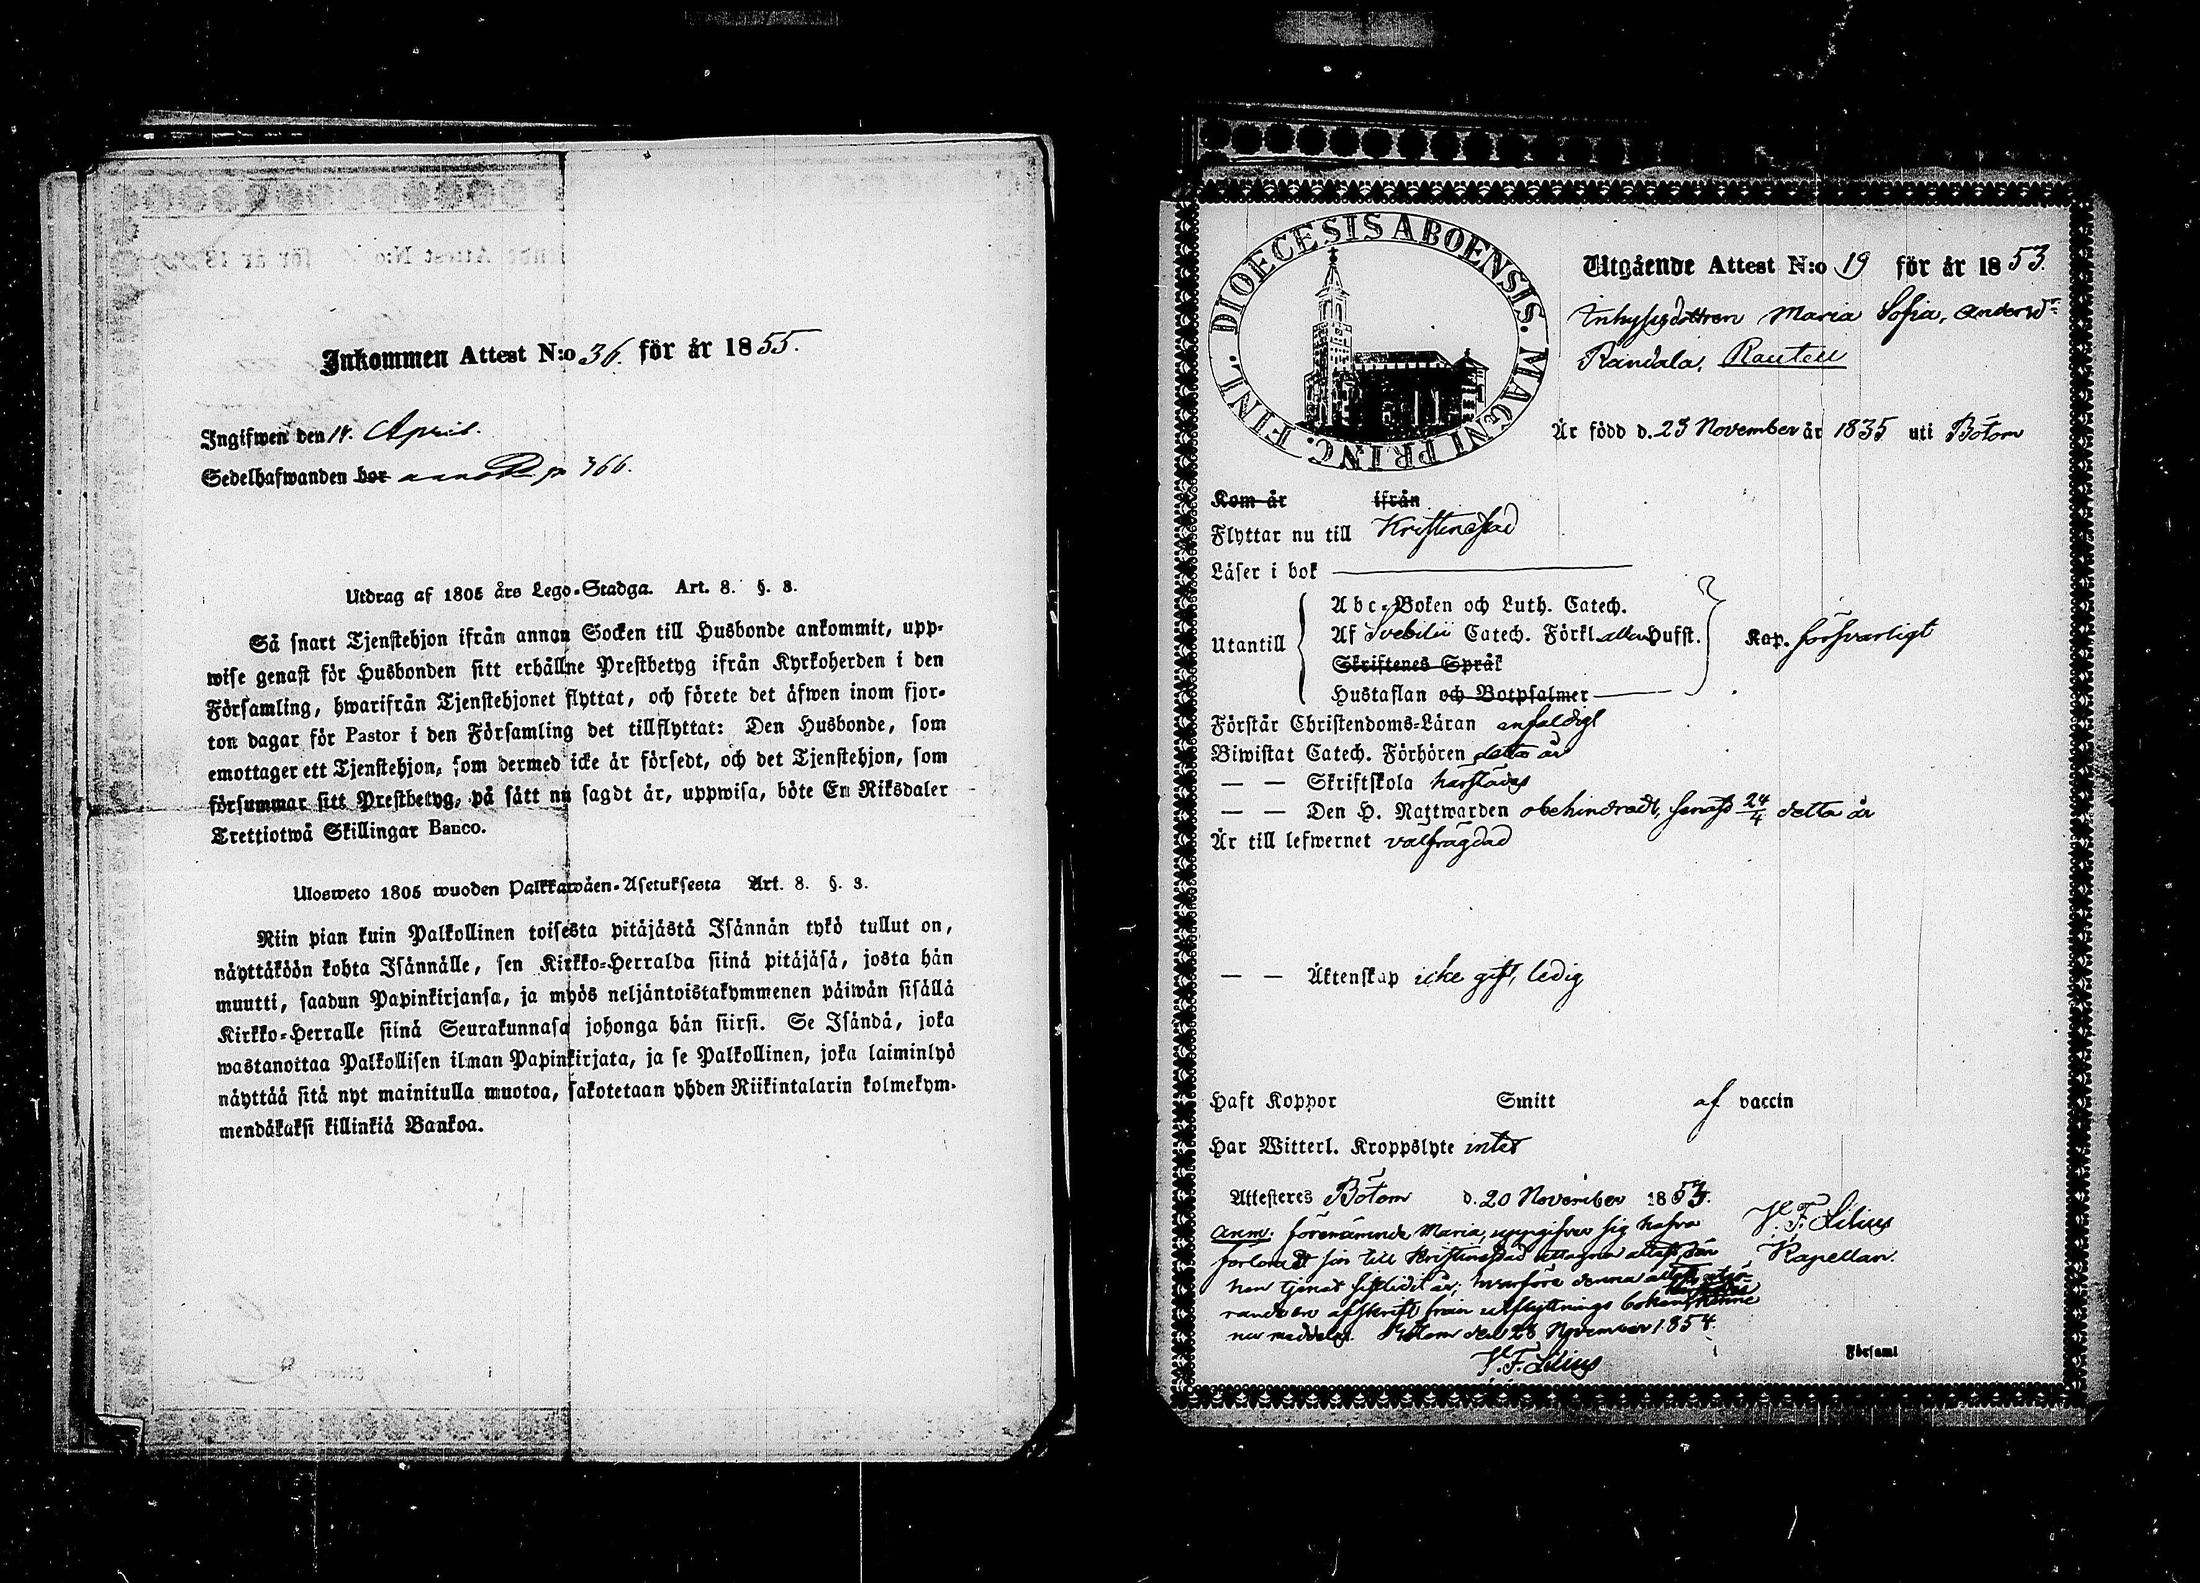 Inkommen Attest N:o 36. för år 1855.
Ingifwen den 14. April.
Sedelhafwanden bor p 366.
Utdrag af 1805 års Lego-Stadga. Art. 8. §. 3.
Så snart Tjenstehjon ifrån annan Socken till Husbonde ankommit, upp-
wise genast för Husbonden sitt erhållne Prestbetyg ifrån Kyrkoherden i den
Församling, hwarifrån Tjenstehjonet flyttat, och förete det äfwen inom fjor-
ton dagar för Pastor i den Församling det tillflyttat: Den Husbonde, som
emottager ett Tjenstehjon, som dermed icke är försedt, och det Tjenstehjon, som
försummar sitt Prestbetyg, på sätt nu sagdt är, uppwisa, böte En Riksdaler
Trettiotwå Skillingar Banco.
Ulosweto 1805 wuoden Palkkawäen-Asetuksesta Art. 8. §. 3.
Niin pian kuin Palkollinen toisesta pitäjästä Isännän tykö tullut on,
näyttäköön kohta Isännälle, sen Kirkko-Herralda siinä pitäjäsä, josta hän
muutti, saadun Papinkirjansa, ja myös neljäntoistakymmenen päiwän sisällä
Kirkko-Herralle siinä Seurakunnasa johonga hän siirsi. Se Isändä, joka
wastanottaa Palkollisen ilman Papinkirjata, ja se Palkollinen, joka laiminlyö
näyttää sitä nyt mainitulla muotoa, sakotetaan yhden Riikintalarin kolmekym-
mendäkaksi killinkiä Bankoa.
DIOECESIS ABOENSIS. MAGNI PRINC. FINL.
Utgående Attest N:o 19 för år 1853.
Inhysesdottren Maria Sofia, Andersdr
Randala, Rauteu
Är född d. 23 November år 1835 uti Bötom
Kom år ifrån
Flyttar nu till Kristinestad
Läser i bok
Utantill
Abc-Boken och Luth. Catech.
Af Svebilii Catech. Förkl. allen Hufst.
Skriftenes Språk
Hustaflan och Botpsalmer
Kap. försvarligt
Förstår Christendoms-Läran enfaldigt
Biwistat Catech. Förhören detta år
— — Skriftskola härstädes
— — Den H. Nattwarden obehindradt, senast 24/4 detta år
Är till lefwernet välfrägdad
— — Äktenskap icke gift, ledig
Haft Koppor Smitt af vaccin
Har Witterl. Kroppslyte intet
Attesteres Bötom d. 20 November 1853.
V. F. Lilius
Kapellan.
Anm. förenämnde Maria, uppgifver sig hafva
förlorat sin till Kristinestad uttagna attest, där
hon tjenat sistlidit år, hvarföre denna attest utgö-
rande en afskrift från utflyttnings boken,
nu meddelas. Bötom den 28 November 1854.
V. F. Lilius
Församl